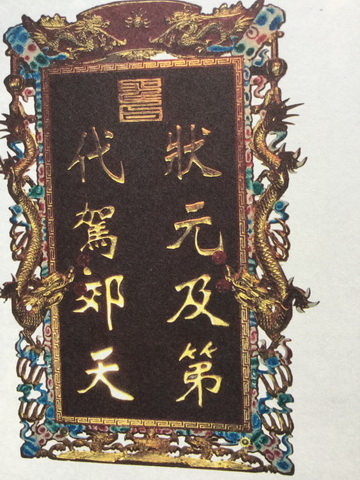 状元及第
代駕郊天